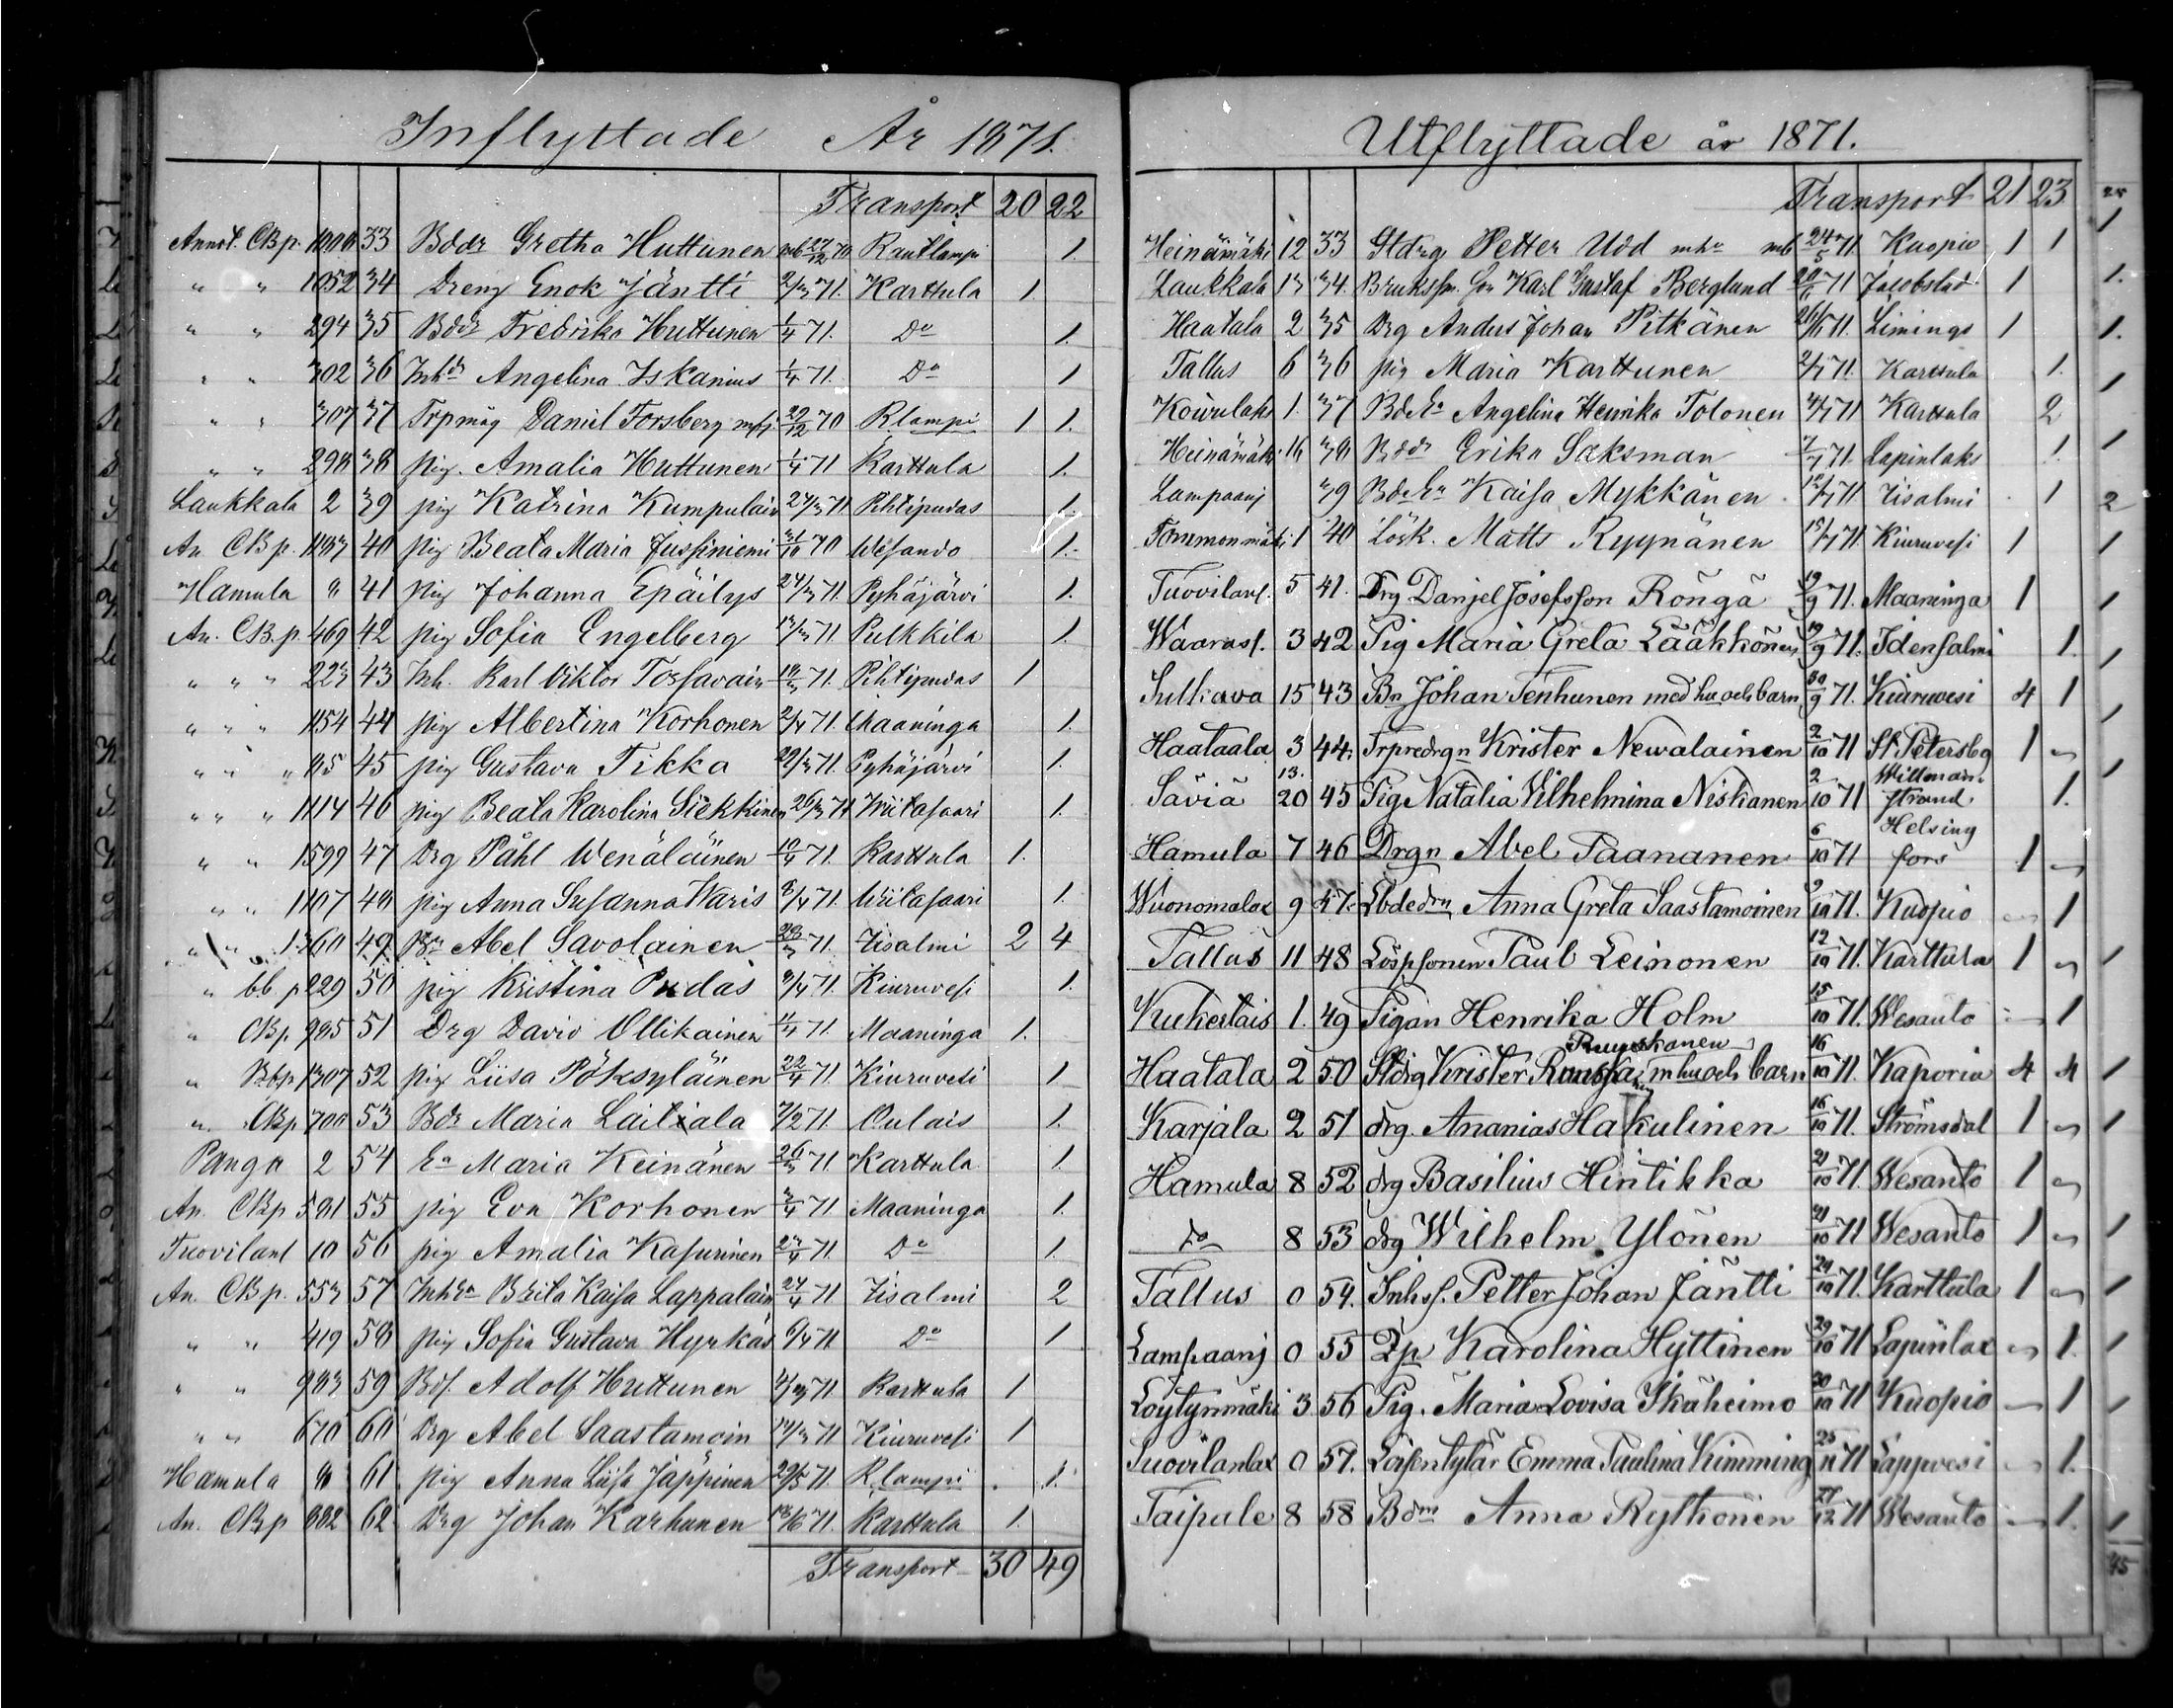 Inflyttade År 1871.
Transport 20 22
Annot. CBp. 1008 33 Bddr Gretha Huttunen mb 27/12 70 Rautlampi 1
" " 1052 34 Dreng Enok Jäntti 2/3 71. Karttula 1.
" " 294 35 Bddr Fredrika Huttunen 1/4 71. Do 1.
" " 302 36 Inhdr Angelina Iskanius 1/4 71. Do 1
" " 307 37 Trpmåg Daniel Forsberg 22/12 70 Rlampi 1 1.
" " 298 38 pig. Amalia Huttunen 1/4 71 Karttula 1.
Laukkala 2 39 pig Katrina Kumpulain 24/3 71 Pihtipudas 1.
An CBp. 40 pig Beata Maria Jussiniemi 31/10 70 Wesando 1.
Hamula 8 41 pig Johanna Epäilys 24/3 71. Pyhäjärvi 1.
An. CB.p. 469 42 pig Sofia Engelberg 13/3 71 Pulkkila 1.
" " " 223 43 Inh. Karl Viktor Torsavain 71. Pihtipudas 1
" " " 1154 44 pig Albertina Korhonen 2/4 71 Maaninga 1.
" " " 45 pig Gustava Tikka 29/3 71. Pyhäjärvi 1.
" " " 1114 46 pig Beata Karolina Siekkinen 26/3 71 Wiitasaari 1.
" " 1599 47 Drg Påhl Wenäläinen 10/4 71. Karttula 1.
" " 1107 48 pig Anna Susanna Waris 8/4 71. Wiitasaari 1.
" " 1360 49 Bn Abel Savolainen 28/3 71. Iisalmi 2 4
" bb. p 229 50 pig Kristina Pudas 9/4 71. Kiuruvesi 1.
" CBp. 985 51 Drg David Ollikainen 11/4 71. Maaninga 1.
" Bbp 1307 52 pig Liisa Pöksyläinen 22/4 71. Kiuruvesi 1
" CBp 700 53 Bdr Maria Laitiala 7/2 71. Oulais 1.
Panga 2 54 Ea Maria Keinänen 26/3 71. Karttula 1.
An. CBp 581 55 pig Eva Korhonen 3/4 71 Maaninga 1.
Tuovilanl 10 56 pig Amalia Kasurinen 23/4 71. Do 1.
An. CBp. 553 57 Inhea Brita Kaisa Lappalain 24/4 71 Iisalmi 2
" " 419 58 pig Sofia Gustava Hyrkäs 6/4 71 Do 1
" " 983 59 Bds. Adolf Huttunen 4/3 71 Karttula 1
" " 670 60 Drg Abel Saastamoin 14/3 71 Kiuruvesi 1
Hamula 8 61 pig Anna Luisa Jäppinen 29/5 71. Rlampi 1.
An. CBp 882 62 Drg Johan Karhunen 18/6 71. Karttula 1.
Transport 30 49
Utflyttade år 1871.
Transport 21 23
Heinämäki 12 33 Stdrg Petter Udd mhu mb 24/5 71. Kuopio 1 1
Laukkala 13 34. Karl Gustaf Berglund 20/6 71 Jakobstad 1
Haatala 2 35 Drg Anders Johan Pitkänen 26/6 71. Limingo 1
Tallus 6 36 pig Maria Karttunen 2/7 71. Karttula 1.
Koivulaks 1. 37 Bdea Angelina Henrika Tolonen 4/7 71 Karttula 2
Heinämäki 16 38 Bddr Erika Saksman 7/7 71. Lapinlaks 1.
Lampaanj 39 Bdea Kaisa Mykkänen 12/7 71 Iisalmi 1
Tommonmäki 1 40 Lösk. Matts Ryynänen 15/7 71. Kiuruvesi 1
Tuovilanl. 5 41. Drg Danjel Josefsson Röngä 19/9 71. Maaninga 1
Waarasl. 3 42 Pig Maria Greta Lääkkönen 19/9 71. Idensalmi 1.
Sulkava 15 43 Bn Johan Tenhunen med hu och barn 30/9 71. Kiuruvesi 4 1
Haataala 3 44. Trpredrgn Krister Newalainen 2/10 71 St Petersbg 1
Säviä 13. 20 45 Pig Natalia Vilhelmina Niskanen 2/10 71 Willmanstrand. 1.
Hamula 7 46 Drgn Abel Taananen 6/10 71 Helsingfors 1
Wuonomalax 9 47. Lbdedrn Anna Greta Saastamoinen 9/10 71. Kuopio 1
Tallus 11 48 Löspsonen Paul Leinonen 12/10 71. Karttula 1
Kukertais 1. 49 Pigan Henrika Holm 15/10 71. Wesanto 1
Ruuskanen
Haatala 2 50 Stdrg Krister m hu och barn 16/10 71. Kaporia 4 4
Karjala 2 51 drg. Ananias Hakulinen 16/10 71. Strömsdal 1
Hamula 8 52 drg Basilius Hintikka 21/10 71. Wesanto 1
Do 8 53 drg Wilhelm Ylönen 21/10 71 Wesanto 1
Tallus 0 54. Inhs. Petter Johan Jäntti 29/10 71. Karttula 1
Lampaanj 0 55 Karolina Hyttinen 29/10 71 Lapinlax 1.
Löytynmäki 3 56 Pig. Maria Lovisa Ikäheimo 30/10 71 Kuopio 1
Tuovilanlax 0 57. Emma Paulina Kimming 25/11 71 Lappvesi 1.
Taipale 8 58 Bdm Anna Rytkönen 27/12 71 Wesanto 1.